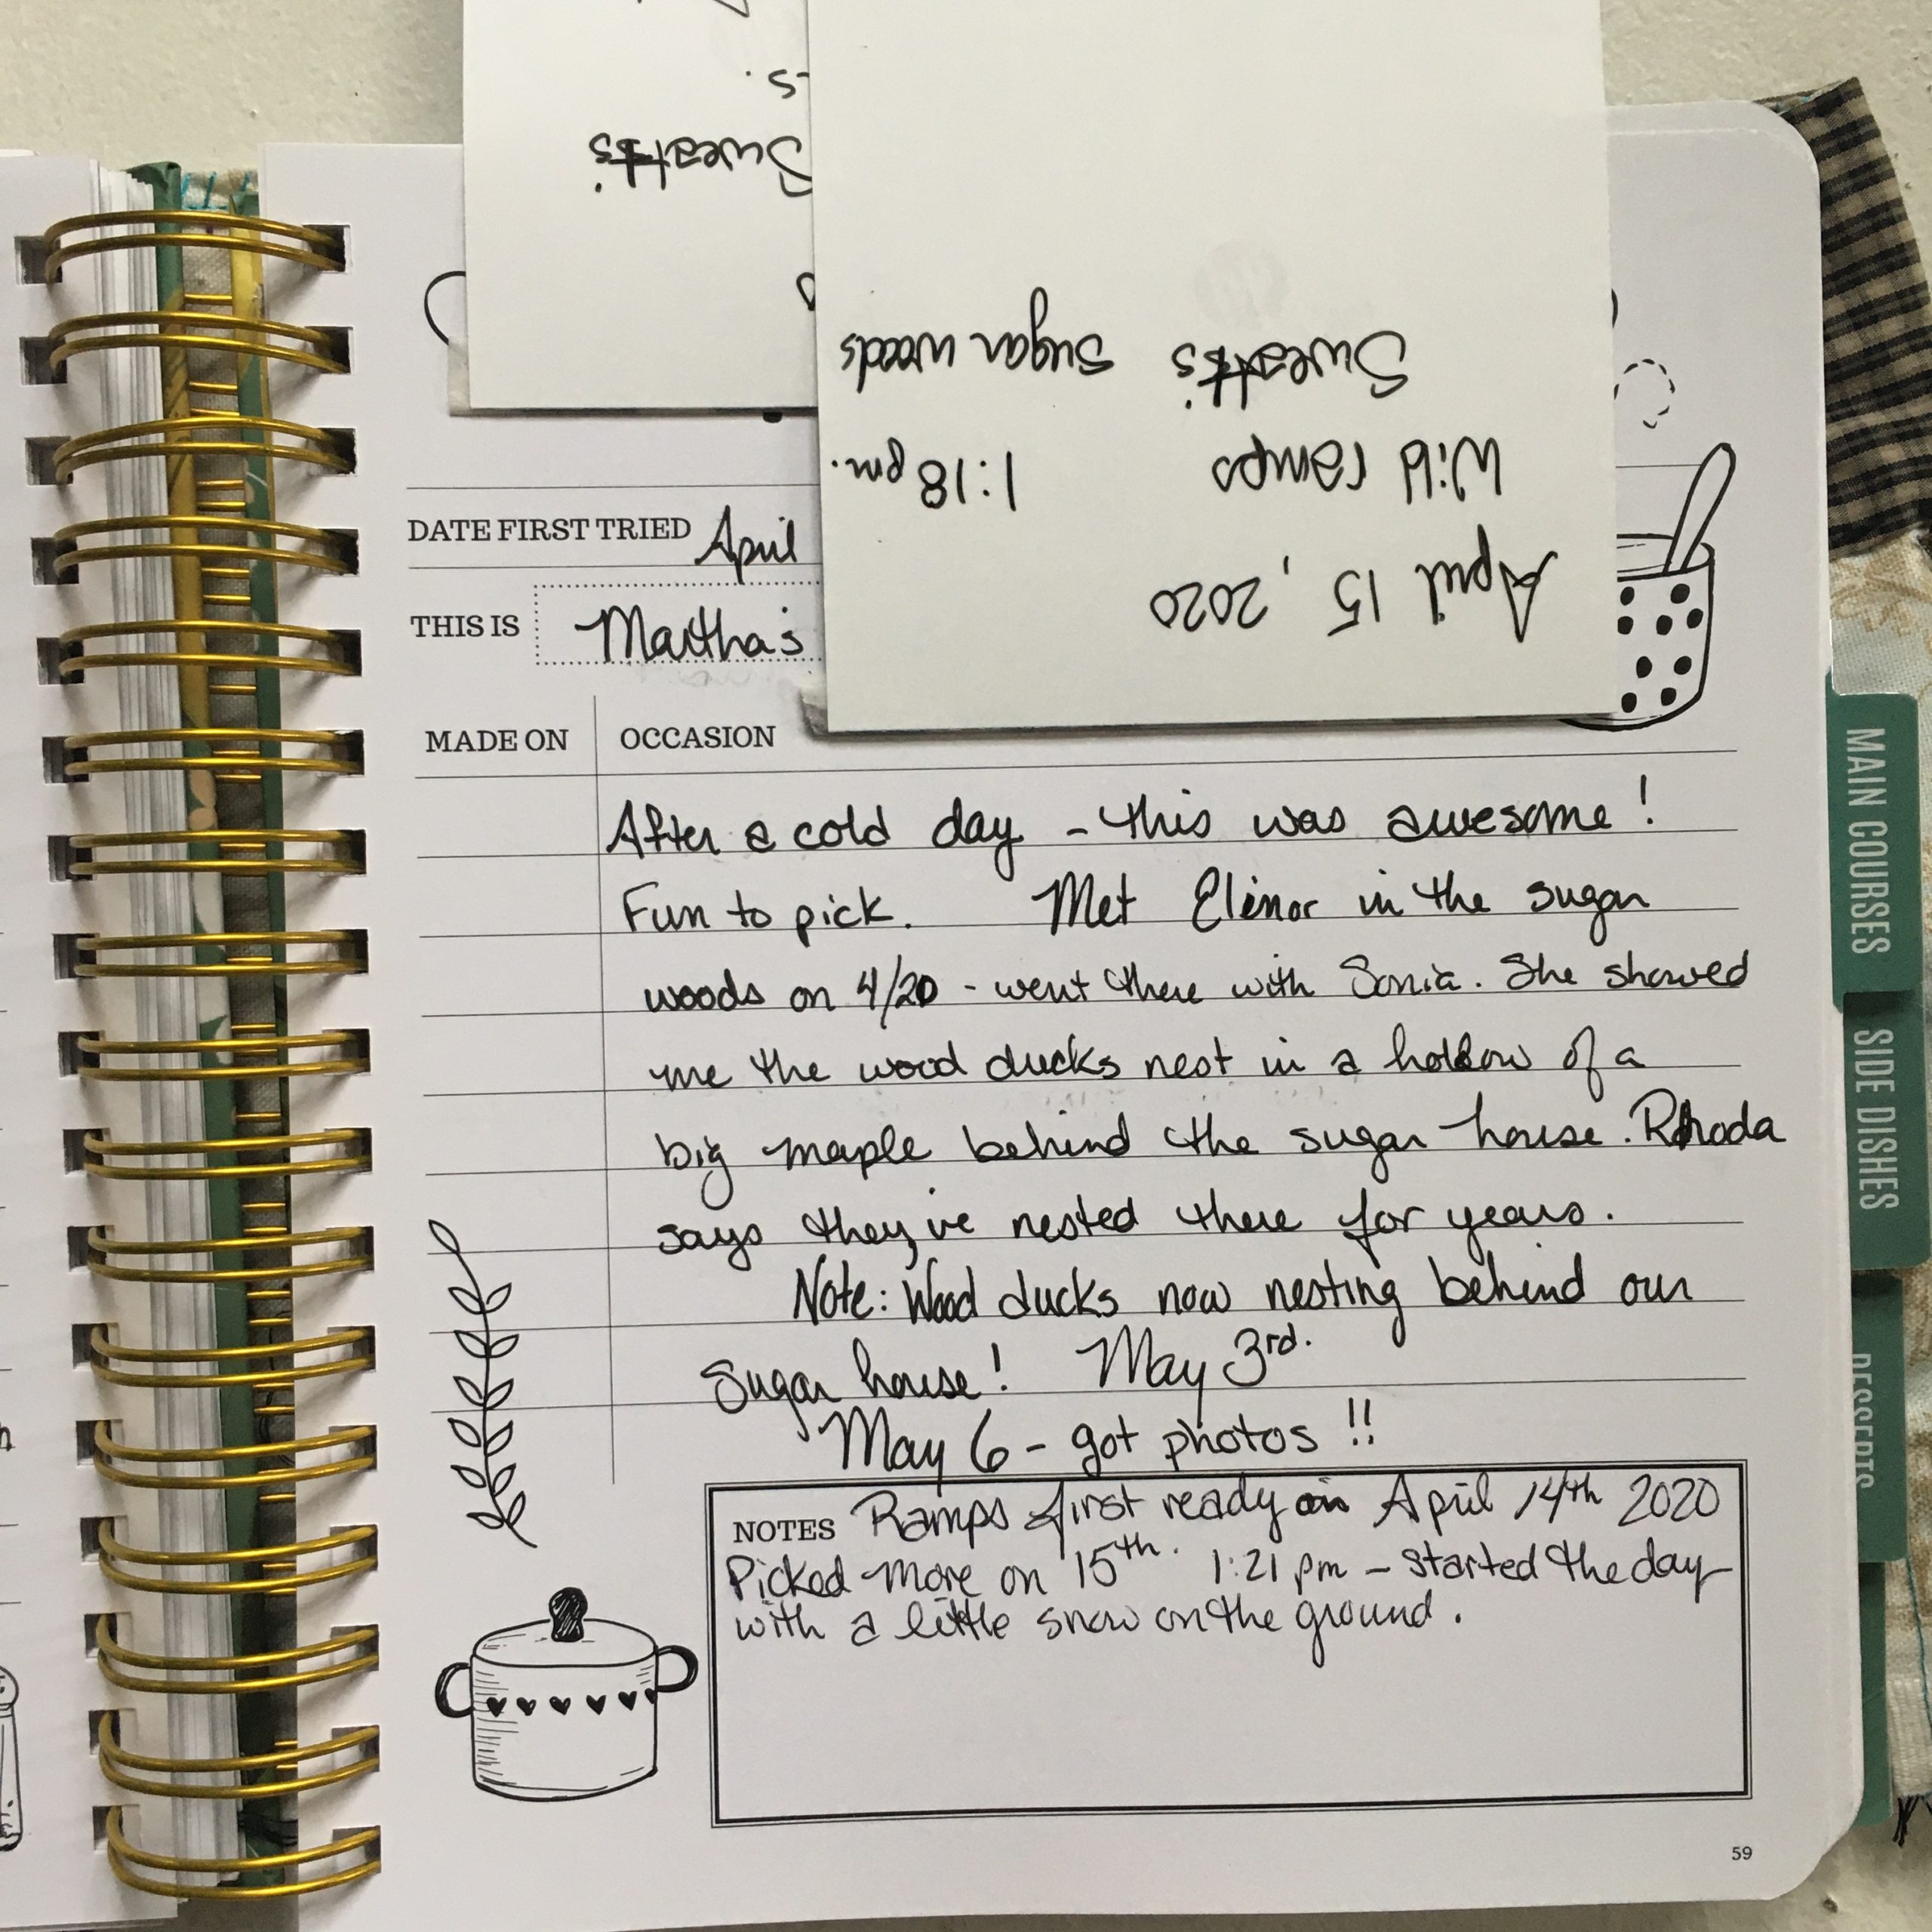 s.
Sweatt's
April 15, 2020
Wild ramps 1:18 pm.
Sweatt's Sugar woods
DATE FIRST TRIED April
THIS IS Martha's
MADE ON OCCASION
After a cold day - this was awesome!
Fun to pick. Met Elinor in the sugar
woods on 4/20 - went there with Sonia. She showed
me the wood ducks nest in a hollow of a
big maple behind the sugar house. Rhoda
says they've nested there for years.
Note: Wood ducks now nesting behind our
Sugar house! May 3rd.
May 6 - got photos!!
NOTES Ramps first ready on April 14th 2020
Picked more on 15th. 1:21 pm - started the day
with a little snow on the ground.
59
MAIN COURSES
SIDE DISHES
DESSERTS